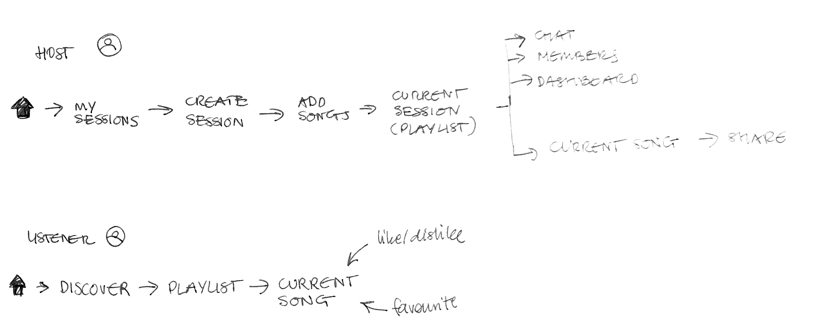 HOST
MY
SESSIONS
CREATE
SESSION
ADD
SONGS
CURRENT
SESSION
(PLAYLIST)
CHAT
MEMBERS
DASHBOARD
CURRENT SONG
SHARE
LISTENER
DISCOVER
PLAYLIST
CURRENT
SONG
like/dislike
favourite